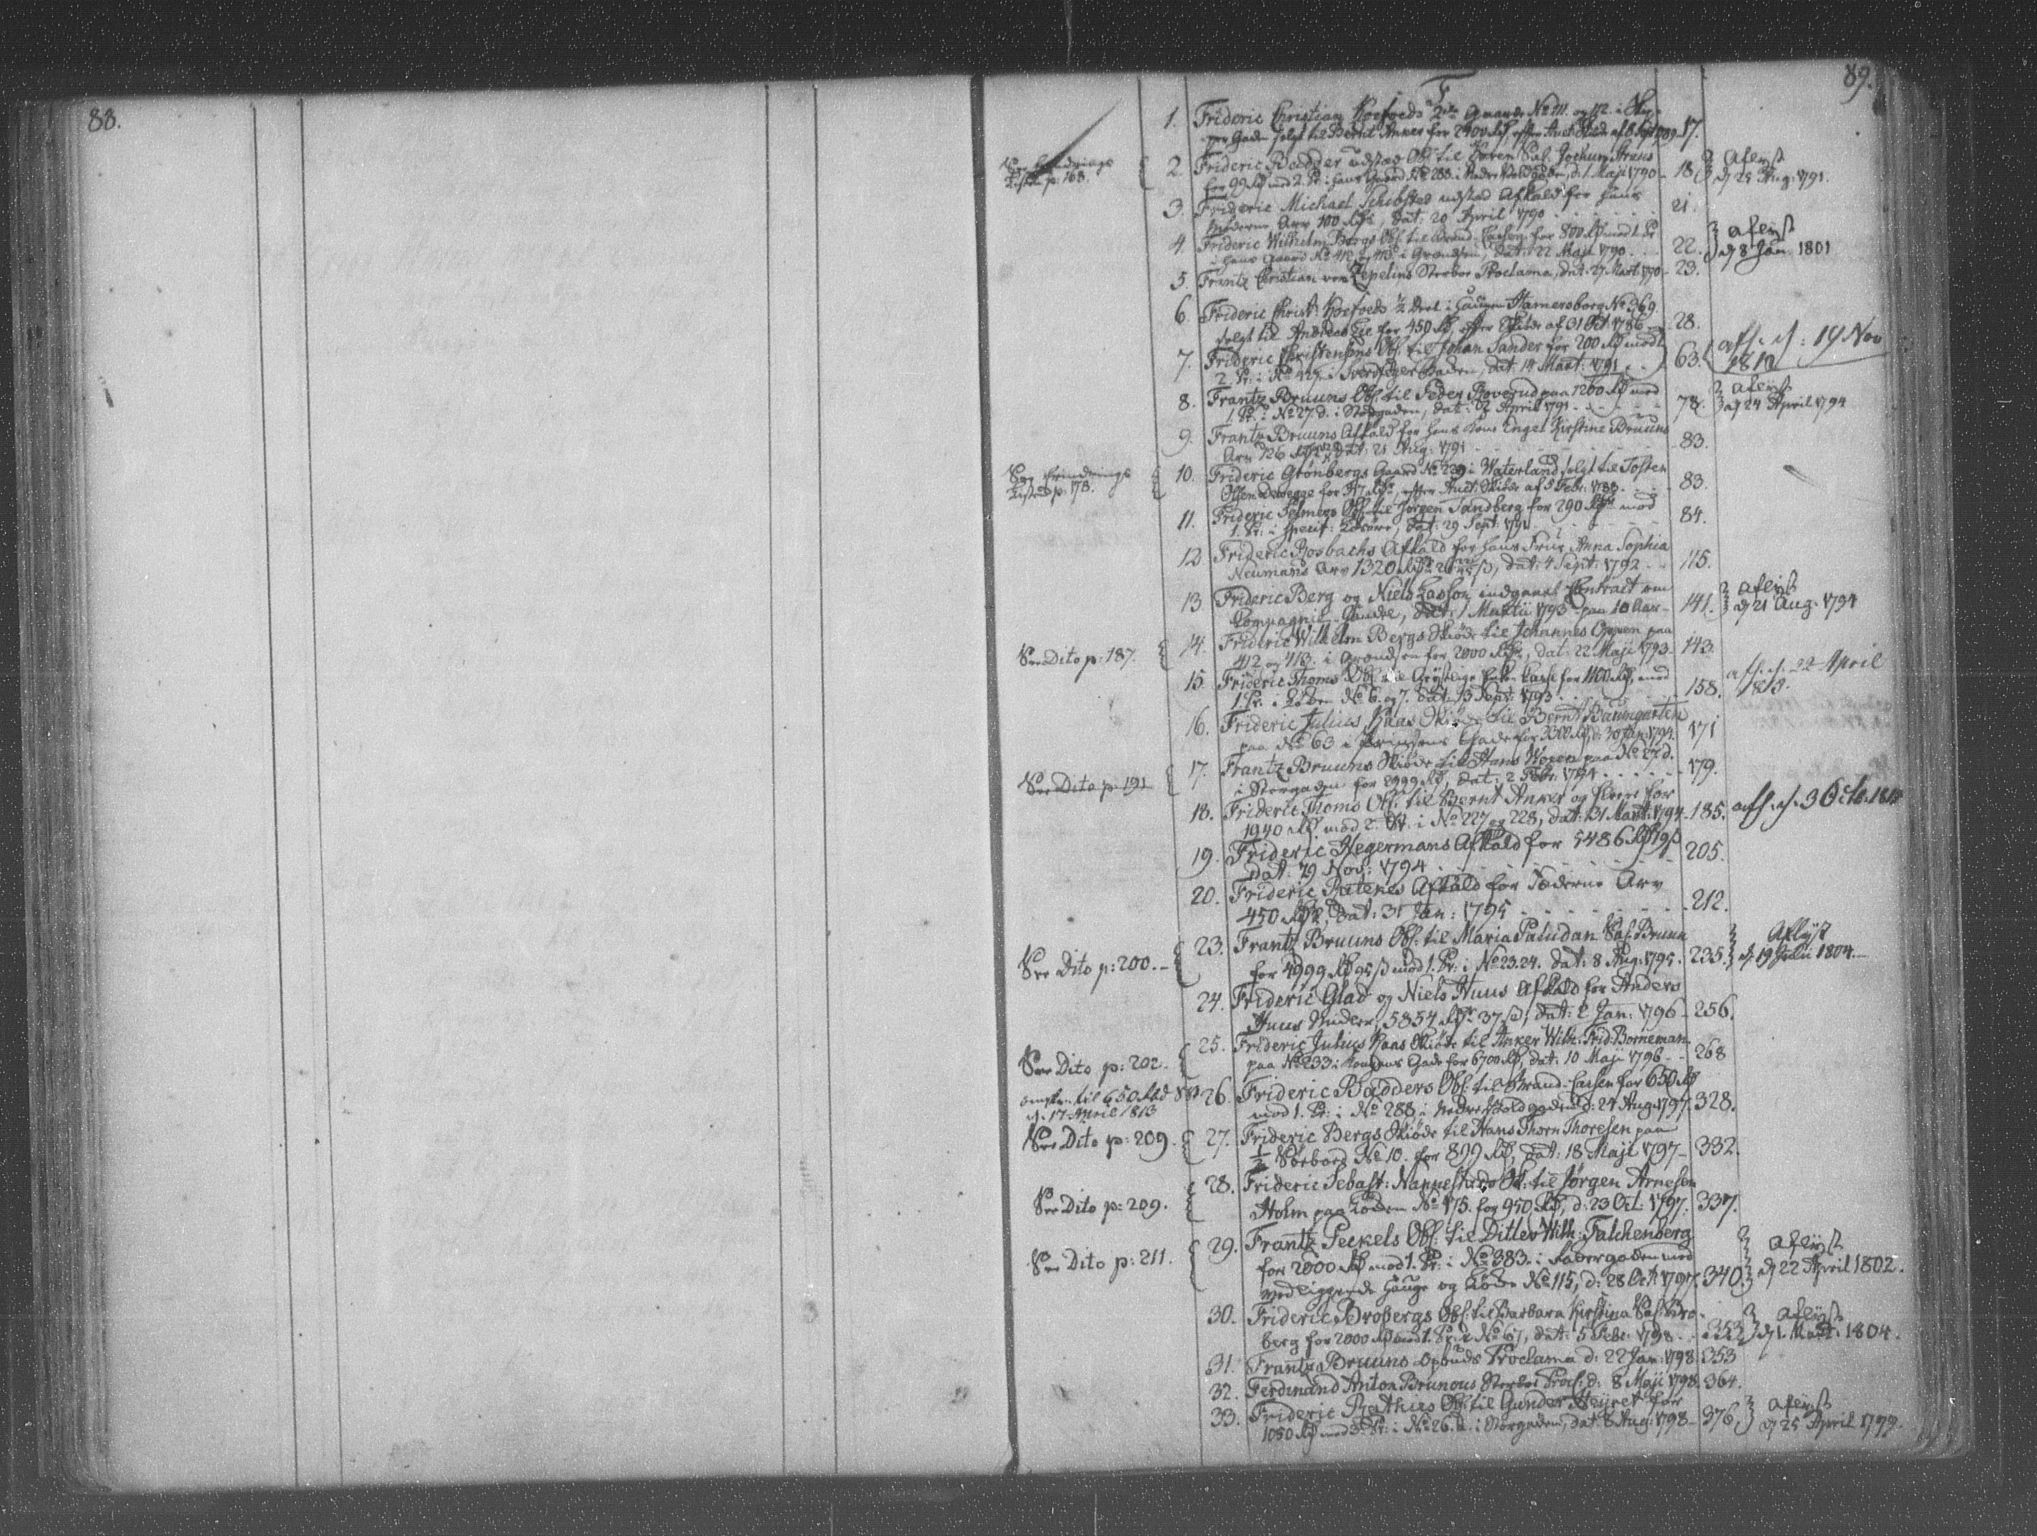 88.
89.
F
1. Frideric Christian Koefoeds 2de Gaarde No 111 og 112 i Skip-
per Gaden solgt til Bernt Anker for 2900 Rd efter Auct. Skiøde af 8 Sept 1789. 17.
2. Frideric Bødder udstæd Obl: til Sal. Jochum
for 99 Rd mod 2. Pr: i hans Gaard No 288 i Nedre Voldgaden, d: 1 Maji 1790 - 18 Aflyst
d 25 Aug: 1791.
3. Frideric Michael udstæd Afkald for hans
Møderne Arv 100 Rd, dat: 20 April 1790 21.
4. Frideric Wilhelm Bergs Obl: til Brand Cassen for 800 Rd mod 1. Pr
i hans Gaard No 412 og 413 i Grændsen, dat: 22 Maji 1790 22. Aflyst
d 8 Jan. 1801
5. Frantz Christian von Zepelins Sterboe Proclama, dat: 27 Mart 1790 - 23.
6. Frideric Christ: Koefoeds 1/2 Deel i Haugen Hamersborg No 369
solgt til Andreas Lie for 450 Rd, efter Skiøde af 31 Oct. 1786 28.
7. Frideric Christensens Obl: til Johan Sander for 200 Rd mod
2. Pr: i No 427 i Gaden, dat: 14 Mart: 1791 63. afl. d: 19 Nov
1812
8. Frantz Bruuns Obl: til Peder Roverud paa 1200 Rd mod
1. Pr: i No 27.d. i Storgaden, dat: 2 April 1791 78. Aflyst
d 24 April 1794
9. Frantz Bruuns Afkald for hans Kone Engel Kirstine Bruuns
Arv 726 Rd, dat: 21 Aug: 1791 83.
See Erindrings
Listen p: 178.
10. Frideric Grønbergs Gaard No 229 i Waterland solgt til Tosten
Olsen for 347 Rd, efter Auct. Skiøde af 5 Febr: 1788 83.
11. Frideric Selmers Obl: til Jørgen Sandberg for 290 Rd mod
1. Pr: i specif: Løsøre, dat: 29 Sept: 1791 84.
12 Frideric Rosbachs Afkald for hans Frue Anna Sophia
Neumans Arv 1320 Rd, dat: 4 Sept: 1792 115.
13 Frideric Berg og Niels Lasson indgaaet Contract om
Compagnie-Handel, dat: 1 Martii 1793 paa 10 Aar - 141. Aflyst
d 21 Aug: 1794
See Dito p: 187.
14. Frideric Wilhelm Bergs Skiøde til Johannes Oppen paa
412 og 413. i Grændsen for 2000 Rd, dat: 22 Maji 1793 - 143.
15. Frideric Thoms Obl: til Gejstlige Enke Casse for 1100 Rd, mod
1. Pr: i Løkken No 6. og 7. dat: 13 Sept: 1793 158. afl. d. 22 April
16. Frideric Julius Kaas Skiøde til Bernt Baumgarten
paa No 63 i Prinsens Gade for 3300 Rd, d: 30 Jan 1794. 171
See Dito p: 191
17. Frantz Bruuns Skiøde til Hans Woxen paa No 27 d.
i Storgaden for 2999 Rd, dat: 2 Febr: 1794 179.
18. Frideric Thoms Obl: til Bernt Anker og fleere for
1940 Rd mod 2. Pr: i No 227 og 228, dat: 31 Mart: 1794 185. afl. d. 3 Octb.
19. Frideric Hegermans Afkald for 5486 Rd 19 ß
Dat: 29 Nov: 1794 205.
20. Frideric Afkald for Fæderne Arv
450 Rd, dat: 31 Jan: 1795 212.
See Dito p: 200.
23. Frantz Bruuns Obl: til Maria Paludan Sal. Bruun
for 4999 Rd 95 ß mod 1. Pr: i No 23.24. dat: 8 Aug: 1795. 235. Aflyst
d 19 Julii 1804.
24. Frideric Glad og Niels Huus Afkald for Anders
Huus Midler, 5854 Rd 37 ß, dat: 2 Jan: 1796 - 256.
See Dito p: 202.
25. Frideric Julius Kaas Skiøde til Anker Wilh. Frid: Borneman
paa No 233 i Kongens Gade for 6700 Rd, dat: 10 Maji 1796 - 268
til 650 Rd
d. 17 April 1813
26. Frideric Bødders Obl: til Brand-Cassen for 650 Rd
mod 1. Pr: i No 288 i Nedre Voldgaden d: 24 Aug: 1797. 328.
See Dito p: 209
27. Frideric Bergs Skiøde til Hans Thorn Thoresen paa
1/2 Søebod No 10. for 899 Rd, dat: 18 Maji 1797 - 332.
See Dito p: 209.
28. Frideric Sebast: Nannestads Sk: til Jørgen Arnesen
Holm paa Løkken No 175. for 950 Rd, d: 23 Oct: 1797. 337.
See Dito p: 211.
29. Frantz Peckels Obl: til Ditlev Wilh. Falchenberg
for 2000 Rd mod 1. Pr: i No 383. i Aagergaden med
vedliggende Hauge og Løkke No 115, d: 28 Oct: 1797. 340 Aflyst
d 22 April 1802.
30. Frideric Brobergs Obl: til Barbara Kirstina Sal: Bro-
berg for 2000 Rd mod 1. Pr: i No 67, dat: 5 Febr: 1798 352 Aflyst
d 1. Mart: 1804.
31. Frantz Bruuns Opbuds Proclama d: 22 Jan: 1798. 353
32. Ferdinand Anton Brunous Sterboe Procl: d: 8 Maji 1798. 364.
33. Frideric Rathies Obl: til Gunder Heyret for
1050 Rd mod Pr: i No 26.d. i Storgaden, dat: 8 Aug: 1798 - 376 Aflyst
d 25 April 1799.